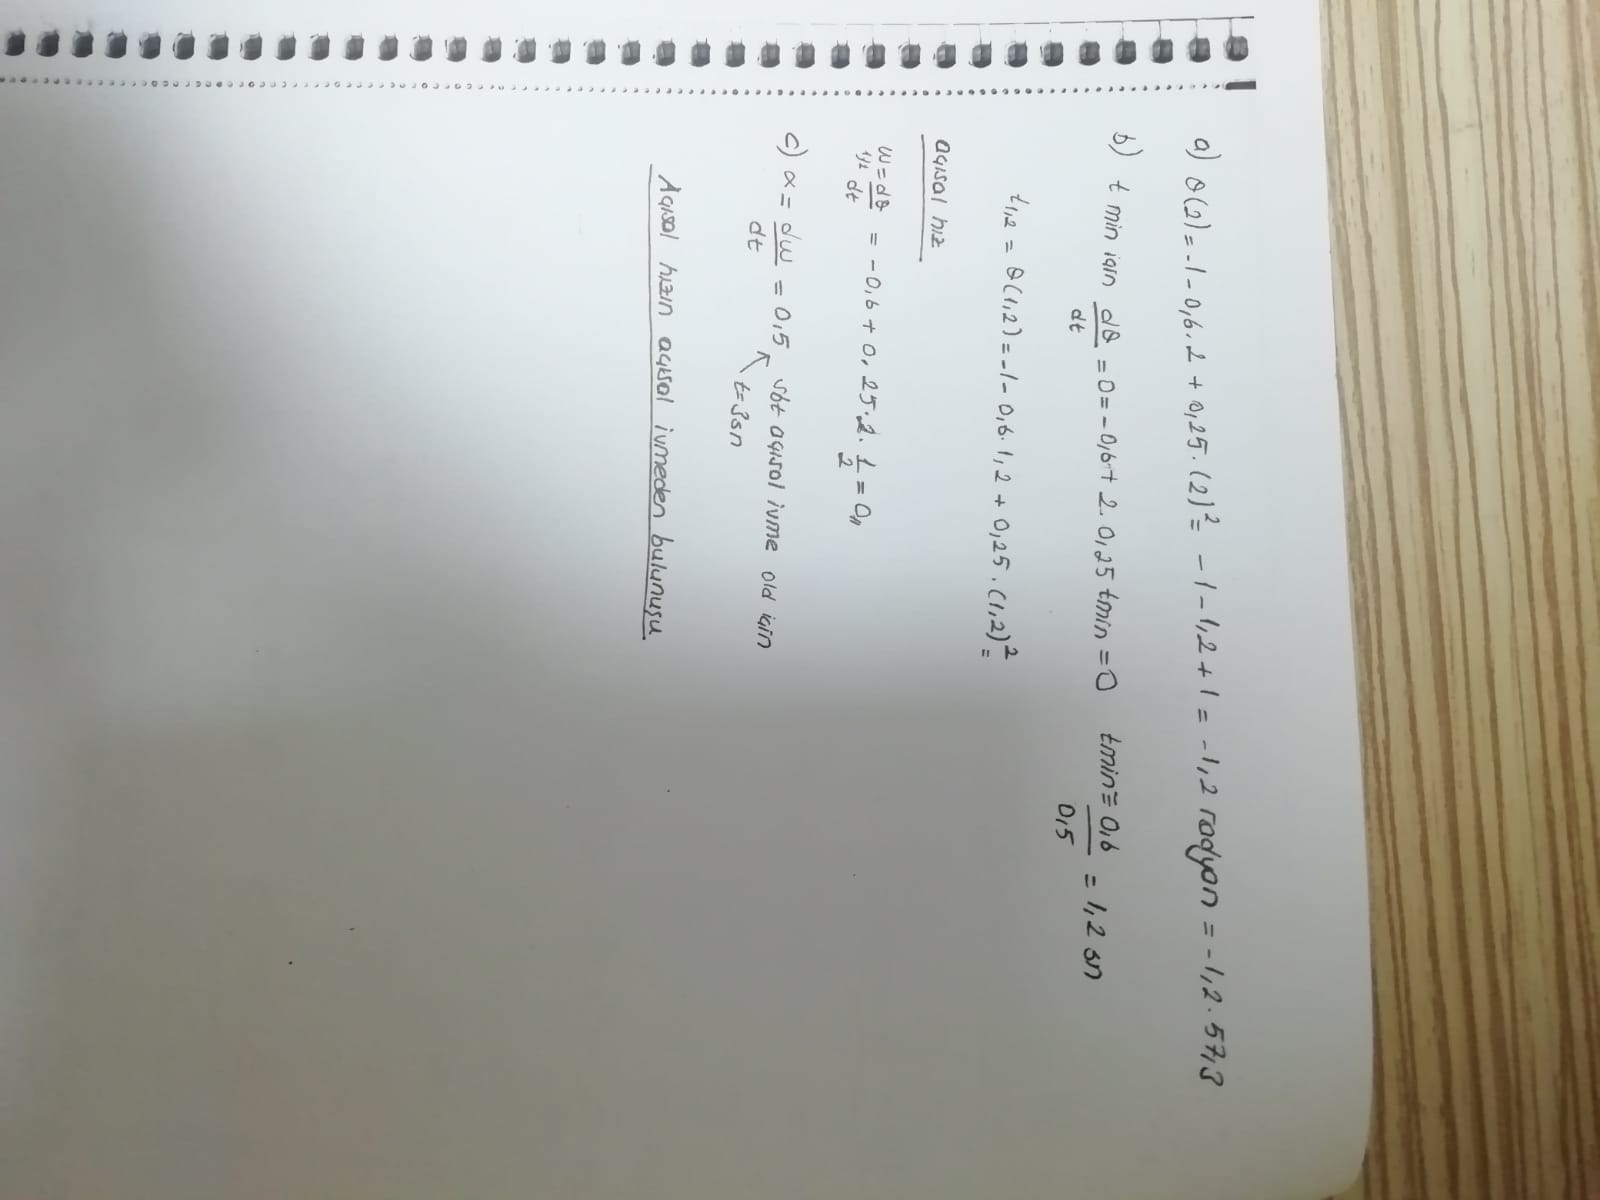 a) θ(2) = -1 - 0,6.2 + 0,25.(2)² = -1 - 1,2 + 1 = -1,2 radyan = -1,2.57,3
b) t min için dθ/dt = 0 = -0,6 + 2.0,25 tmin = 0 tmin = 0,6/0,5 = 1,2 sn
t1,2 = θ(1,2) = -1 - 0,6.1,2 + 0,25.(1,2)² =
açısal hız
ω = dθ/dt = -0,6 + 0,25.2.1/2 = 0,,
c) α = dω/dt = 0,5 sbt açısal ivme old için
t=3sn
Açısal hızın açısal ivmeden bulunuşu